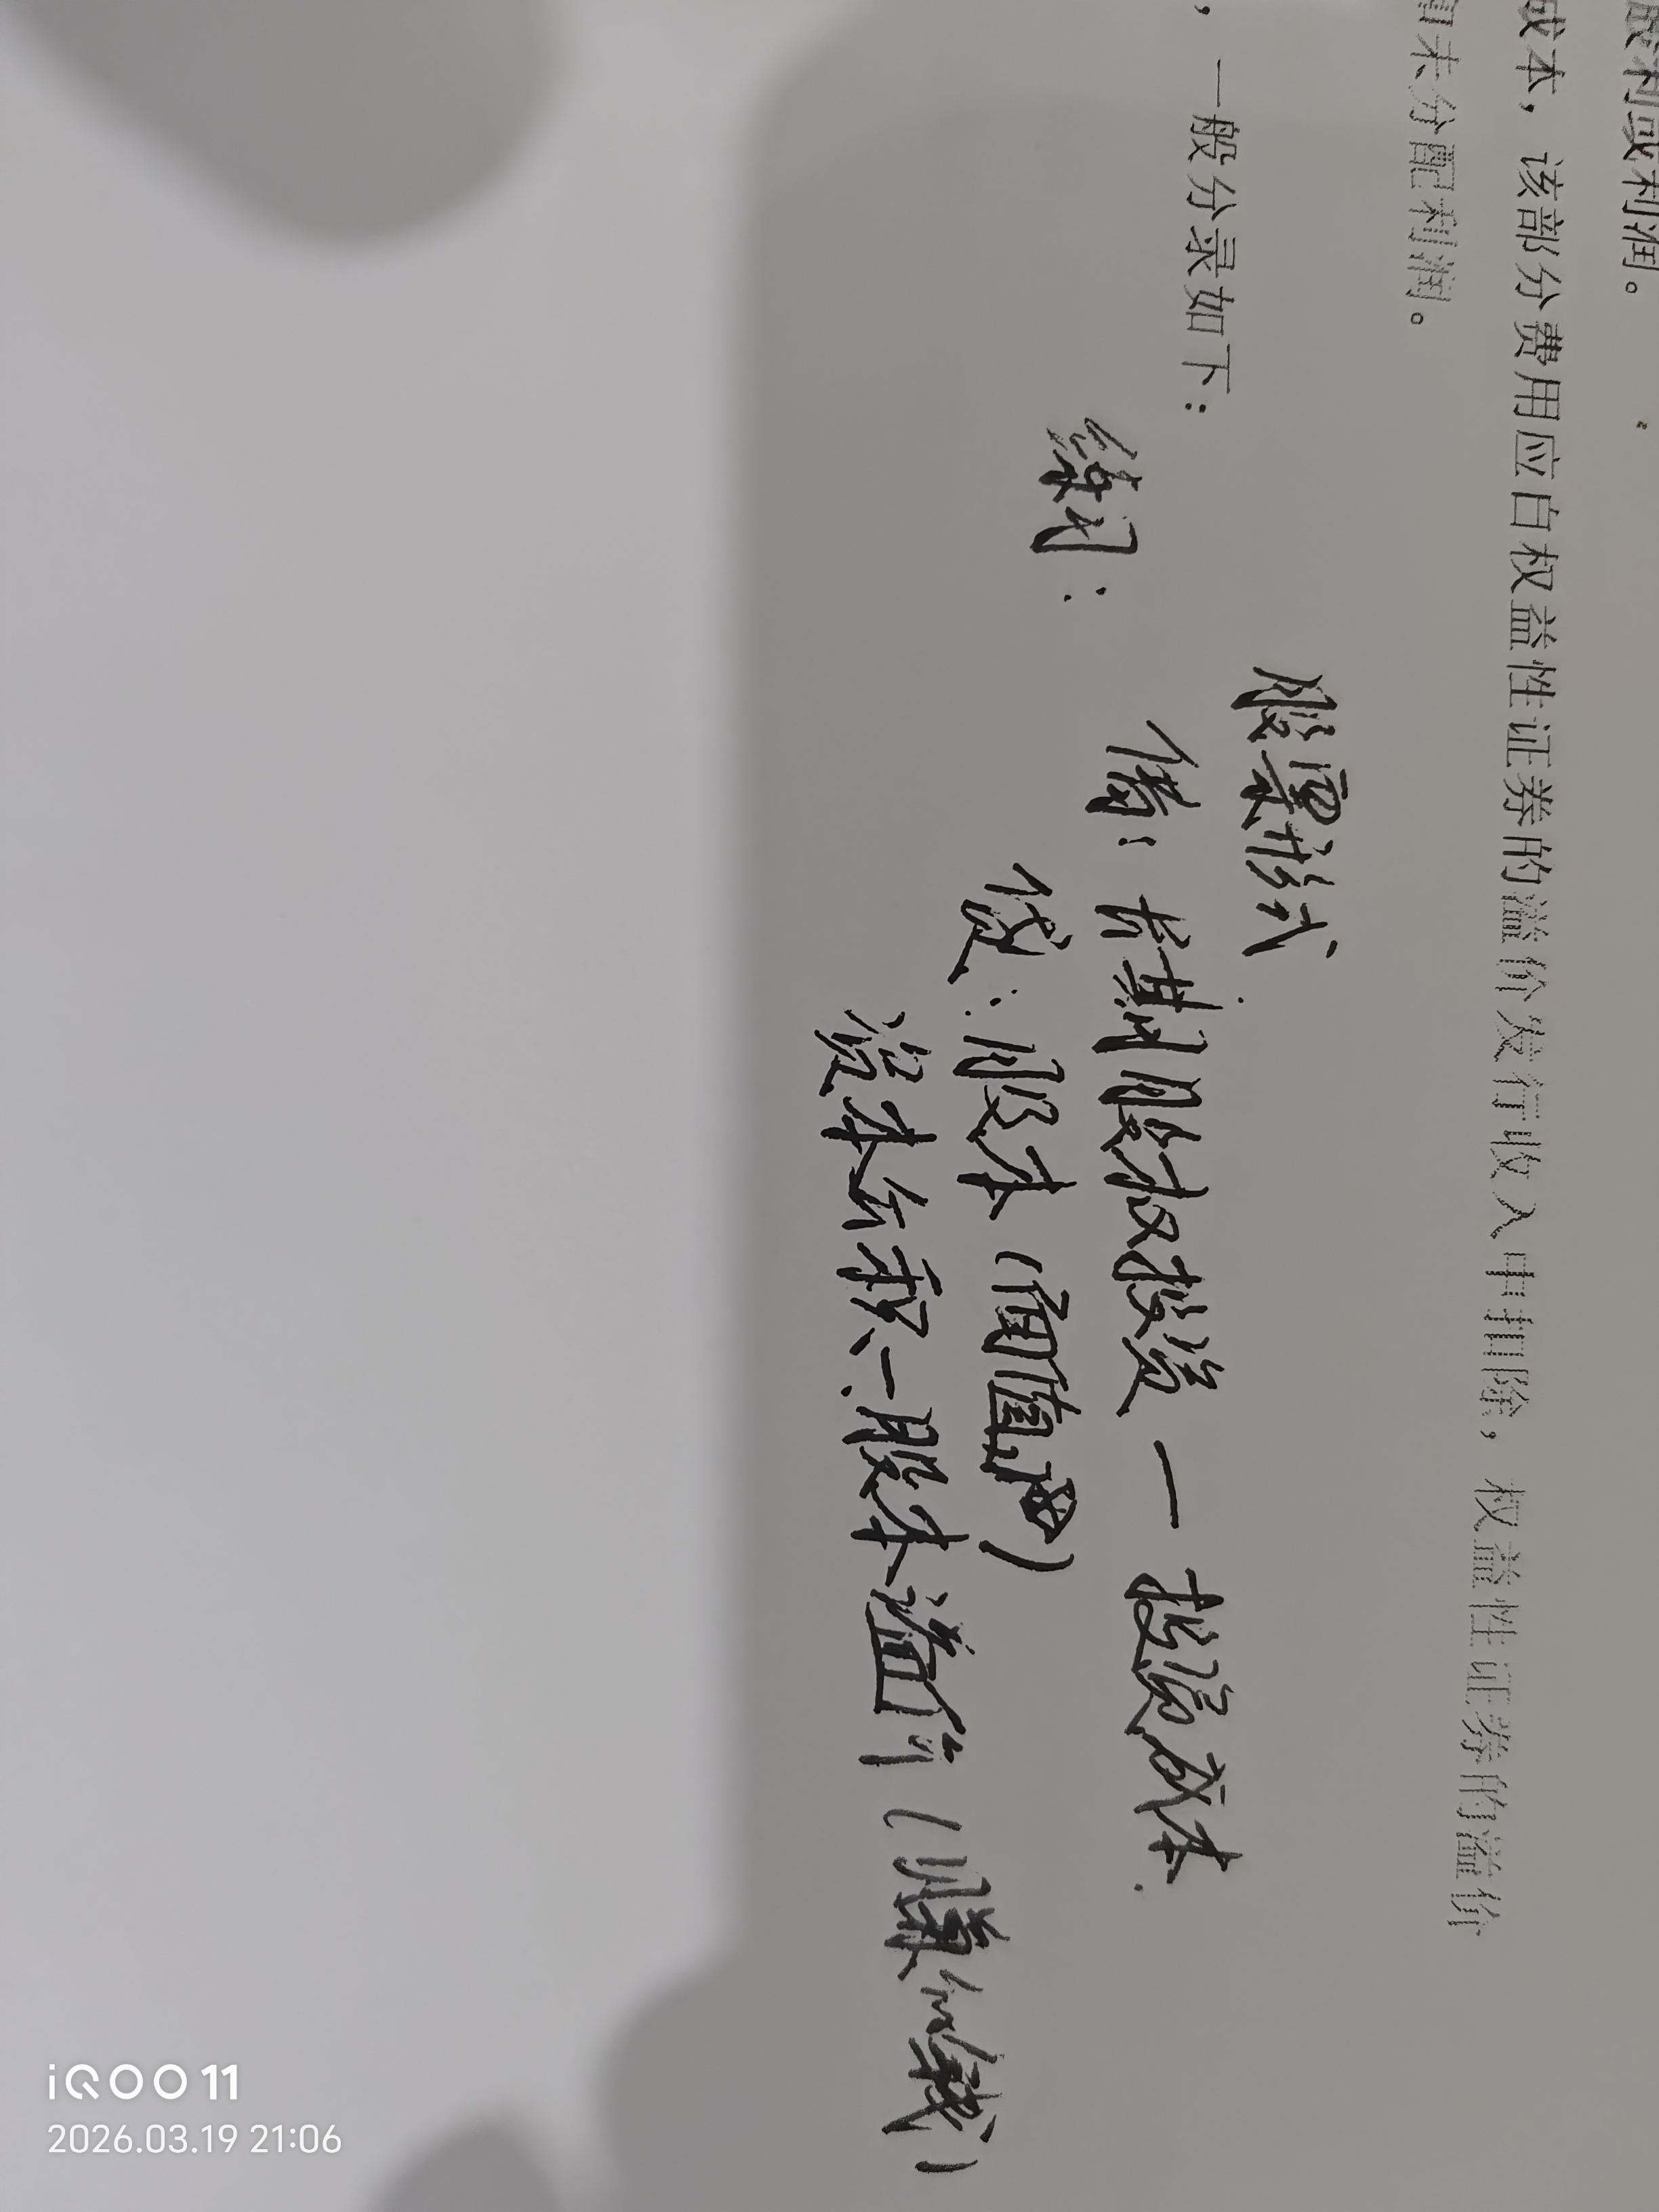 股利或利润。
成本，该部分费用应自权益性证券的溢价发行收入中扣除，权益性证券的溢价
未分配利润。
，一般分录如下：
股票形式
借：长期股权投资一投资成本.
续期：
贷：股本（面值）
资本公积一股本溢价（剩的钱）
iQOO 11
2026.03.19 21:06